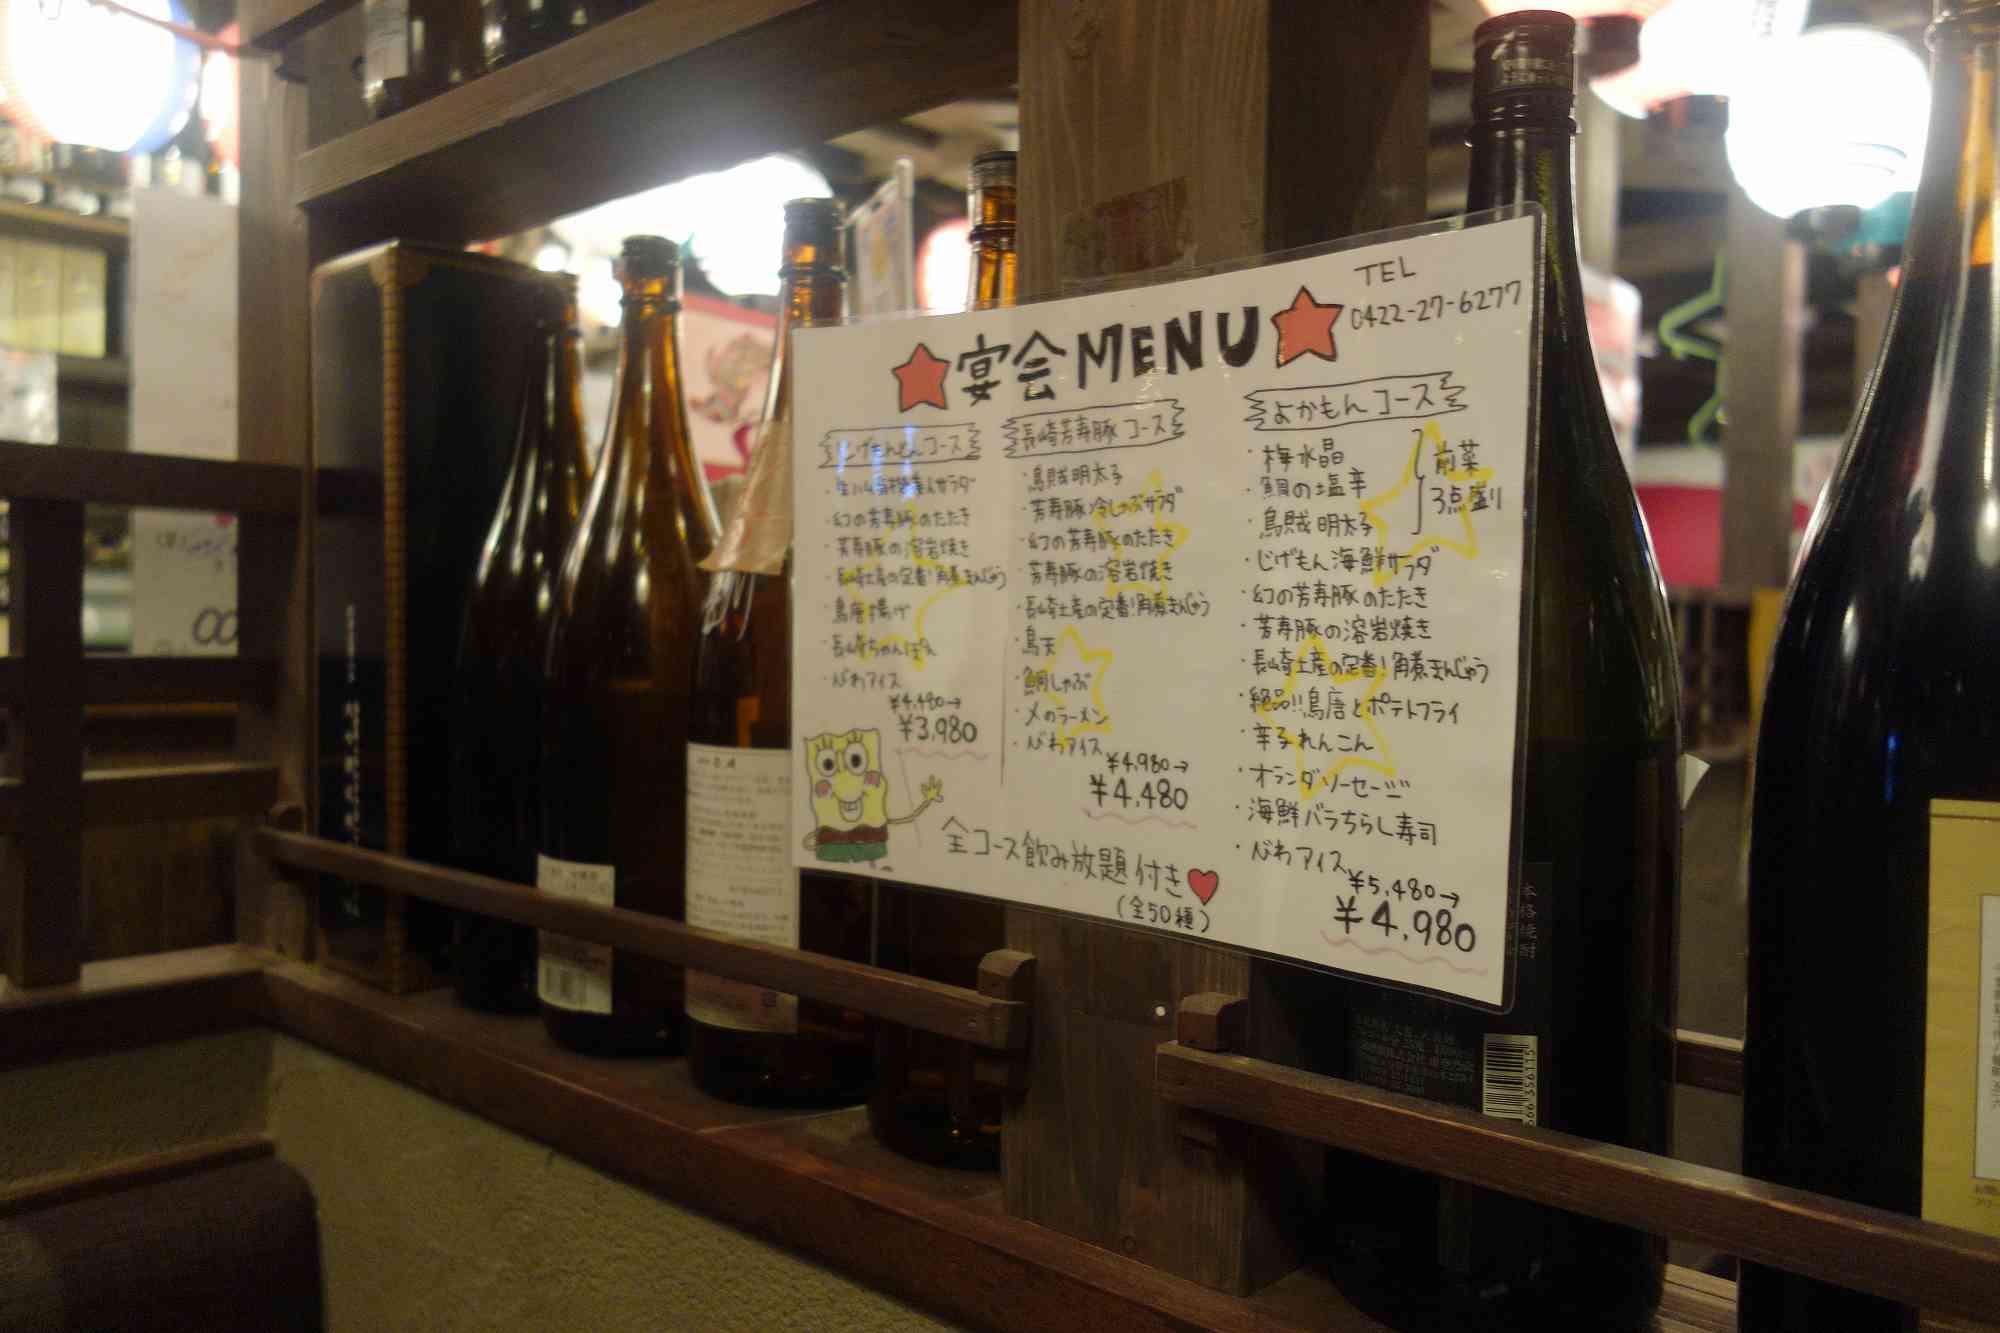 宴会MENU
TEL
0422-27-6277
じげもんとんコース
・生ハム有機美人サラダ
・幻の芳寿豚のたたき
・芳寿豚の溶岩焼き
・長崎土産の定番!角煮まんじゅう
・鳥唐揚げ
・長崎ちゃんぽん
・びわアイス
¥4,480→
¥3,980
長崎芳寿豚コース
・烏賊明太子
・芳寿豚冷しゃぶサラダ
・幻の芳寿豚のたたき
・芳寿豚の溶岩焼き
・長崎土産の定番!角煮まんじゅう
・鳥天
・鯛しゃぶ
・〆のラーメン
・びわアイス
¥4,980→
¥4,480
よかもんコース
・梅水晶
・鯛の塩辛
・烏賊明太子
前菜
3点盛り
・じげもん海鮮サラダ
・幻の芳寿豚のたたき
・芳寿豚の溶岩焼き
・長崎土産の定番!角煮まんじゅう
・絶品!!鳥唐とポテトフライ
・辛子れんこん
・オランダソーセージ
・海鮮バラちらし寿司
・びわアイス
¥5,480→
¥4,980
全コース飲み放題付き
(全50種)
本格焼酎